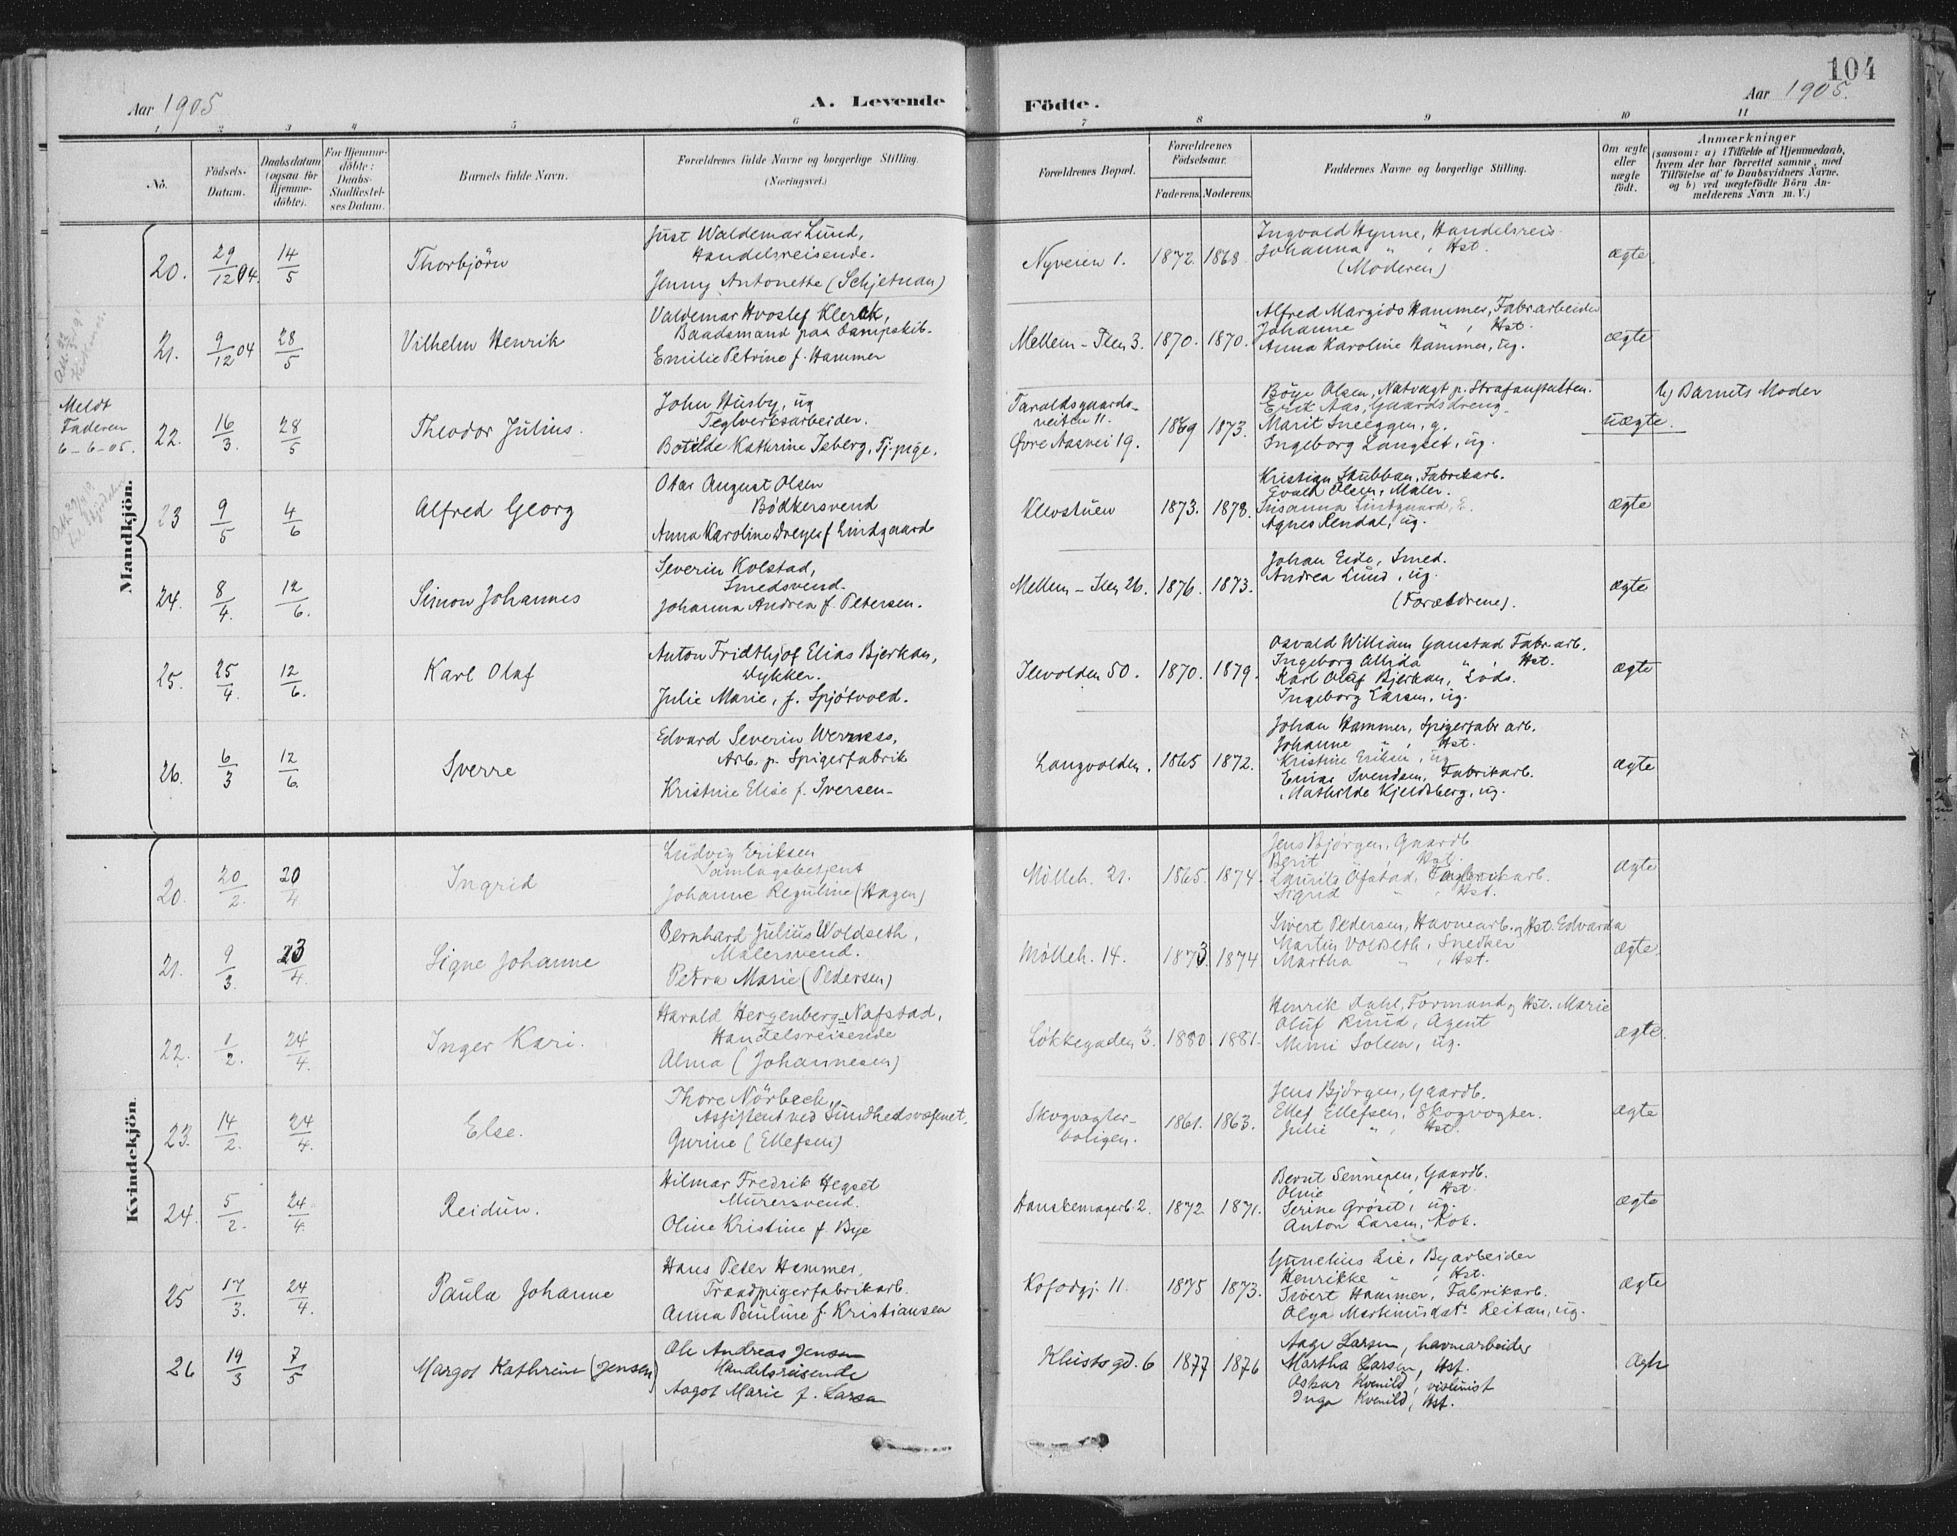 104
Aar 1905
A. Levende
Födte.
Aar 1905.
1 2 3 4 5 6 7 8 9 10 11
No.
Födsels-Datum.
Daabsdatum (ogsaa for Hjemme-döbte).
For Hjemme-döbte: Daabs-Stadfæstel-ses Datum.
Barnets fulde Navn.
Forældrenes fulde Navne og borgerlige Stilling.
(Næringsvei.)
Forældrenes Bopæl.
Forældrenes Födselsaar.
Faderens. Moderens.
Faddernes Navne og borgerlige Stilling.
Om ægte eller uægte födt.
Anmærkninger
(saasom: a) i Tilfælde af Hjemmedaab, hvem der har forrettet samme, med Tilföielse af to Daabsvidners Navne, og b) ved uægtefödte Börn An-melderens Navn m. V.)
Mandkjön.
20. 29/12 04. 14/5 Thorbjörn
Just Waldemar Lund,
Handelsreisende.
Jenny Antonette (Schjetnan)
Nyveien 1. 1872. 1868.
Ingvald Hynne, Handelsreis.
Johanna " , Hst.
(Moderen)
ægte.
21. 9/12 04 28/5 Vilhelm Henrik
Valdemar Hvoslef Klerck,
Baadsmand paa Dampskib.
Emilie Petrine f. Hammer
Mellem-Ilen 3. 1870. 1870.
Alfred Margido Hammer, Fabrarbeider
Johanne " , Hst.
Anna Karoline Hammer, ug.
ægte
Meldt
Faderen
6-6-05.
22. 16/3. 28/5 Theodor Julius.
John Husby, ug
Teglverksarbeider.
Botilde Kathrine Isberg, Tj.pige.
Taraldsgaards-
veiten 11.
Øvre Aasvei 19.
1869 1873.
Böye Olsen, Natvagt p. Strafanstalten.
Erik Aas, Gaardsdreng.
Marit Sneeggen, g.
Ingeborg Langset, ug.
uægte.
b) Barnets Moder
23 9/5 4/6 Alfred Georg
Olaf August Olsen
Bødkersvend
Anna Karoline Dreyer f Lindgaard
Klevstuen 1873. 1878.
Kristian Stubban, Fabrikarb.
Evald Olsen, Maler.
Susanna Lindgaard, E.
Agnes Rendal, ug.
ægte
24. 8/4. 12/6. Simon Johannes
Severin Kolstad,
Smedsvend.
Johanna Andrea f. Petersen.
Mellem-Ilen 26. 1876. 1873.
Johan Eide, Smed.
Andrea Lund, ug.
(Forældrene).
ægte
25. 25/4. 12/6. Karl Olaf
Anton Fridthjof Elias Bjerkan,
Dykker.
Julie Marie, f. Spjøtvold.
Ilevolden 50. 1870. 1879.
Osvald William Ganstad Fabr.arb.
Ingeborg Alida " , Hst.
Karl Olaf Bjerkan, Lods.
Ingeborg Larsen, ug.
ægte
26. 6/3 12/6. Sverre
Edvard Severin Werness,
Arb. p. Spigerfabrik
Kristine Elise f. Iversen-
Langvolden. 1865 1872.
Johan Hammer, Spigerfabr arb.
Johanne " , Hst.
Kristine Eriksen, ug
Enias Svendsen, Fabrikarb.
Mathilde Kjeldsberg, ug.
ægte
Kvindekjön.
20. 20/2. 20/4 Ingrid
Ludvig Eriksen
Samlagsbetjent
Johanne Reguline (Hagen)
Mølleb. 21. 1865. 1874.
Jens Bjørgen, Gaardb.
Berit " , Hst.
Laurits Øfstad, Fabrikarb.
Sigrid " , Hst.
ægte
21. 9/3. 23/4. Signe Johanne
Bernhard Julius Woldseth,
Malersvend.
Petra Marie (Pedersen)
Mølleb. 14. 1873. 1874
Sivert Pedersen, Havnearb. og Hst. Edvarda
Martin Voldseth, Snedker
Martha " , Hst.
ægte.
22. 1/2. 24/4. Inger Kari.
Harald Hergenberg-Nafstad,
Handelsreisende
Alma (Johannesen)
Løkkegaden 3. 1880. 1881.
Henrik Dahl, Formand og Hst. Marie
Oluf Ruud, Agent
Mimi Solem, ug.
ægte.
23. 14/2. 24/4. Else.
Thore Nörbeck,
Assistent ved Sundhedsvæsenet.
Gurine (Ellefsen)
Skogvogter-
boligen.
1861. 1863.
Jens Bjørgen, Gaardb.
Ellef Ellefsen, Skogvogter.
Julie " , Hst.
ægte
24. 5/2. 24/4. Reidun.
Hilmar Fredrik Hegset
Murersvend.
Oline Kristine f. Bye
Hanskemagerb. 2. 1872 1871.
Bernt Sennepen, Gaardb.
Oline " , Hst.
Serine Grøset, ug.
Anton Larsen, Kok.
ægte
25 17/3. 24/4. Paula Johanne
Hans Peter Hammer,
Traadspigerfabrikarb.
Anna Pauline f. Kristiansen
Kofodgj. 11. 1875 1873.
Gunelius Lie, Byarbeider
Henrikke " , Hst.
Sivert Hammer, Fabrikarb.
Olga Martinusdat. Reitan, ug.
ægte
26 19/3 7/5 Margot Kathrine (Jensen)
Ole Andreas Jensen
Handelsreisende
Aagot Marie f. Larsen
Klustsgd. 6 1877 1876
Aage Larsen, havnearbeider
Martha Larsen, Hst.
Oskar Kvenild, violinist
Inga Kvenild, Hst.
Ægte